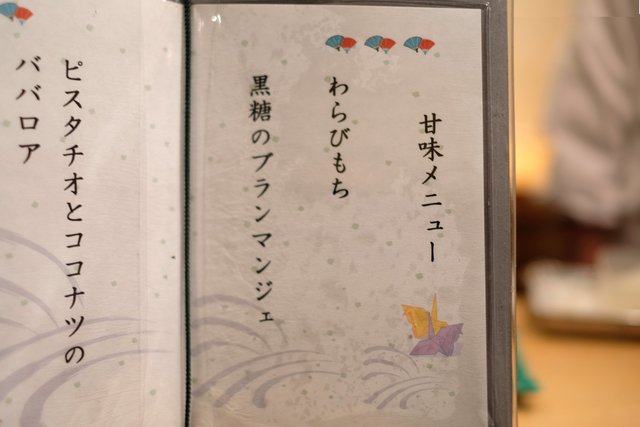 甘味メニュー
わらびもち
黒糖のブランマンジェ
ピスタチオとココナツの
ババロア